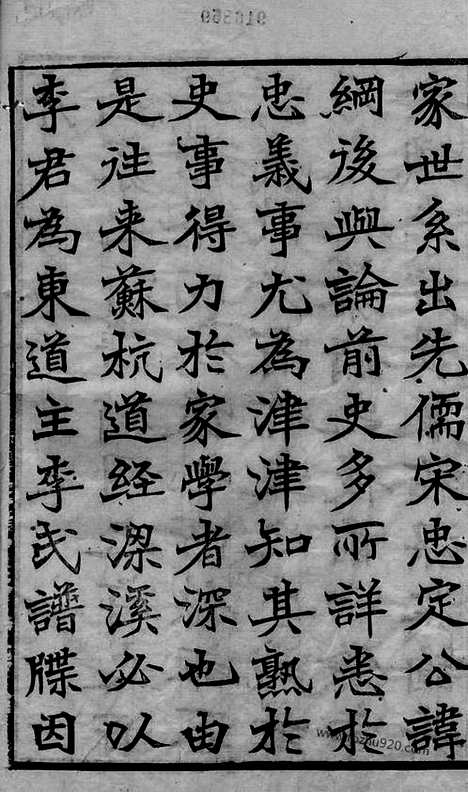 家世系出先儒宋忠定公諱
綱後與論前史多所詳悉於
忠義事尤為津津知其熟於
史事得力於家學者深也由
是往来蘇杭道經梁溪必以
李君為東道主李氏譜牒因